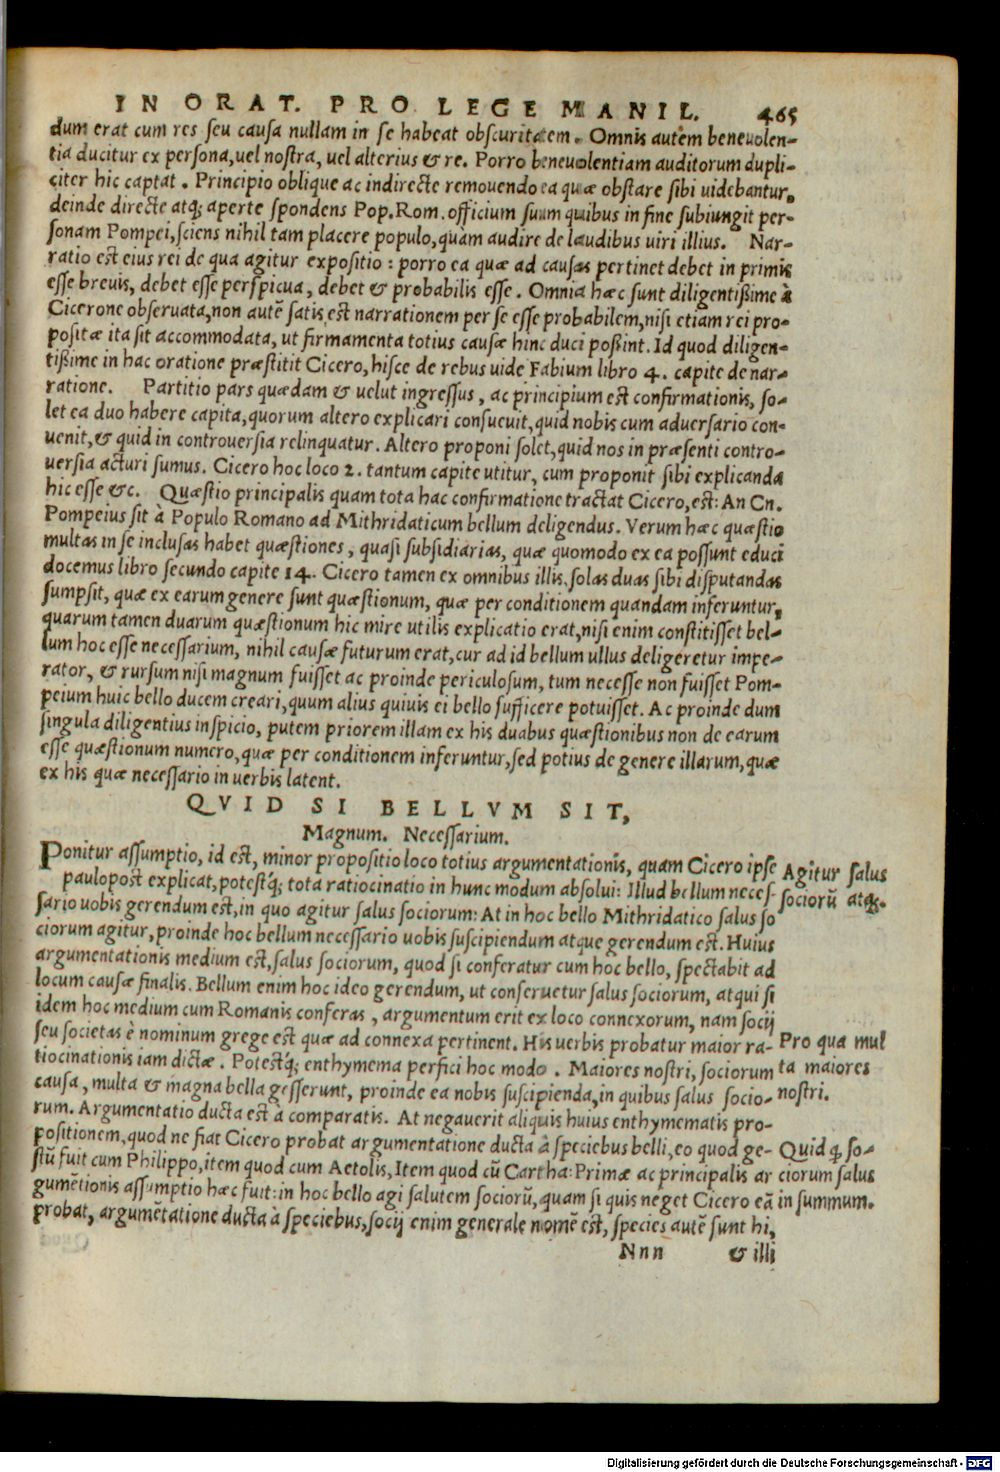 IN ORAT. PRO LEGE MANIL. 465
dum erat cum res seu causa nullam in se habeat obscuritatem. Omnis autem beneuolen-
tia ducitur ex persona, uel nostra, uel alterius & re. Porro beneuolentiam auditorum dupli-
citer hic captat. Principio oblique ac indirecte remouendo ea quæ obstare sibi uidebantur,
deinde directe atq; aperte spondens Pop. Rom. officium suum quibus in fine subiungit per-
sonam Pompei, sciens nihil tam placere populo, quàm audire de laudibus uiri illius. Nar-
ratio est eius rei de qua agitur expositio: porro ea quæ ad causas pertinet debet in primis
esse breuis, debet esse perspicua, debet & probabilis esse. Omnia hæc sunt diligentißime à
Cicerone obseruata, non autē satis est narrationem per se esse probabilem, nisi etiam rei pro-
positæ ita sit accommodata, ut firmamenta totius causæ hinc duci poßint. Id quod diligen-
tißime in hac oratione præstitit Cicero, hisce de rebus uide Fabium libro 4. capite de nar-
ratione. Partitio pars quædam & uelut ingressus, ac principium est confirmationis, so-
let ea duo habere capita, quorum altero explicari consueuit, quid nobis cum aduersario con-
uenit, & quid in controuersia relinquatur. Altero proponi solet, quid nos in præsenti contro-
uersia acturi sumus. Cicero hoc loco 2. tantum capite utitur, cum proponit sibi explicanda
hic esse &c. Quæstio principalis quam tota hac confirmatione tractat Cicero, est: An Cn.
Pompeius sit à Populo Romano ad Mithridaticum bellum deligendus. Verum hæc quæstio
multas in se inclusas habet quæstiones, quasi subsidiarias, quæ quomodo ex ea possunt educi
docemus libro secundo capite 14. Cicero tamen ex omnibus illis, solas duas sibi disputandas
sumpsit, quæ ex earum genere sunt quæstionum, quæ per conditionem quandam inferuntur,
quarum tamen duarum quæstionum hic mire utilis explicatio erat, nisi enim constitisset bel-
lum hoc esse necessarium, nihil causæ futurum erat, cur ad id bellum ullus deligeretur impe-
rator, & rursum nisi magnum fuisset ac proinde periculosum, tum necesse non fuisset Pom-
peium huic bello ducem creari, quum alius quiuis ei bello sufficere potuisset. Ac proinde dum
singula diligentius inspicio, putem priorem illam ex his duabus quæstionibus non de earum
esse quæstionum numero, quæ per conditionem inferuntur, sed potius de genere illarum, quæ
ex his quæ necessario in uerbis latent.
QVID SI BELLVM SIT,
Magnum. Necessarium.
Ponitur assumptio, id est, minor propositio loco totius argumentationis, quam Cicero ipse
paulopost explicat, potestq́; tota ratiocinatio in hunc modum absolui: Illud bellum neces-
sario uobis gerendum est, in quo agitur salus sociorum: At in hoc bello Mithridatico salus so
ciorum agitur, proinde hoc bellum necessario uobis suscipiendum atque gerendum est. Huius
argumentationis medium est, salus sociorum, quod si conferatur cum hoc bello, spectabit ad
locum causæ finalis. Bellum enim hoc ideo gerendum, ut conseruetur salus sociorum, atqui si
idem hoc medium cum Romanis conferas, argumentum erit ex loco connexorum, nam socij
seu societas è nominum grege est quæ ad connexa pertinent. His uerbis probatur maior ra-
tiocinationis iam dictæ. Potestq́; enthymema perfici hoc modo. Maiores nostri, sociorum
causa, multa & magna bella gesserunt, proinde ea nobis suscipienda, in quibus salus socio-
rum. Argumentatio ducta est à comparatis. At negauerit aliquis huius enthymematis pro-
positionem, quod ne fiat Cicero probat argumentatione ducta à speciebus belli, eo quod ge-
stū fuit cum Philippo, item quod cum Aetolis, Item quod cū Cartha: Primæ ac principalis ar
gumētionis assumptio hæc fuit: in hoc bello agi salutem sociorū, quam si quis neget Cicero eā
probat, argumētatione ducta à speciebus, socij enim generale nomē est, species autē sunt hi,
Nnn & illi
Agitur salus
sociorū atq;.
Pro qua mul
ta maiores
nostri.
Quid q̨ so-
ciorum salus
in summum.
Digitalisierung gefördert durch die Deutsche Forschungsgemeinschaft - DFG